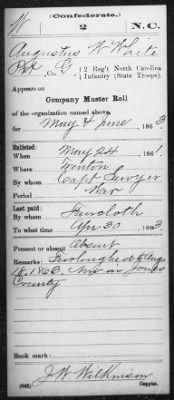 (Confederate.)
W 2 N.C.
Augustus W White
Pvt, Co. G, 2 Reg't North Carolina
Infantry (State Troops).
Appears on
Company Muster Roll
of the organization named above,
for May & June, 1863.
Enlisted:
When May 24, 1861.
Where Trenton
By whom Capt Sawyer
Period War
Last paid:
By whom Faircloth
To what time Apr 30, 1863.
Present or absent Absent
Remarks: Furloughed
18, 1863. Now in Jones
County
Book mark:
J W Wilkinson
(642) Copyist.